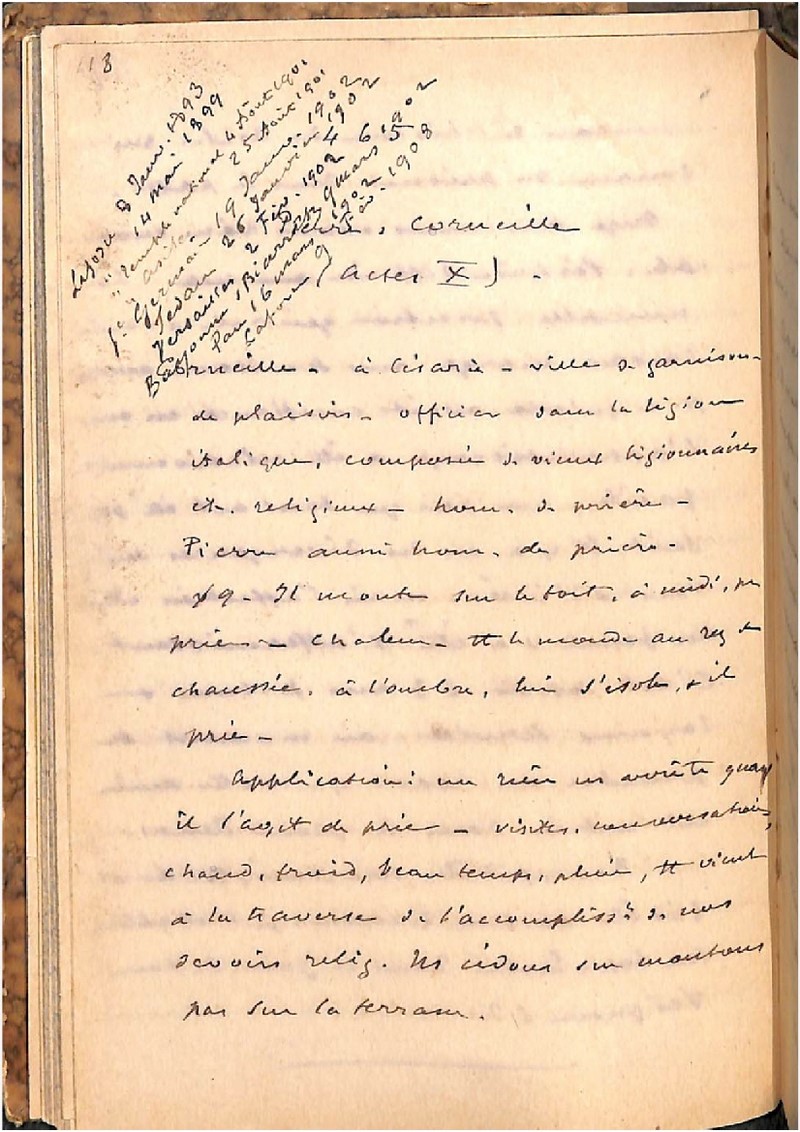 118
Lafosse 8 Janv. 1893
" 14 mai 1899
" Temple national 4 Août 1901
" asiles 25 Août 1901
St Germain 19 Janv. 1902
Sedan 26 Janvier 1902
Versailles 2 Fév. 1902
Bayonne, Biarritz 9 mars 1902
Pau 16 mars 1902
Lafosse 9 Fév. 1908
Pierre, Corneille
(Actes X) -
Corneille - à Césarée - ville de garnison -
de plaisirs - officier dans la légion
italique, composée de vieux légionnaires
et. religieux - hom. de prière -
Pierre aussi hom. de prière -
℣ 9 - Il monte sur le toit, à midi, pr
prier - chaleur - tt le monde au rez de
chaussée, à l'ombre, lui s'isole, & il
prie -
Application: un rien ns arrête quand
il s'agit de prier - visites, conversations,
chaud, froid, beau temps, pluie, tt vient
à la traverse de l'accomplisst de nos
devoirs relig. Ns cédons ns montons
pas sur la terrasse.